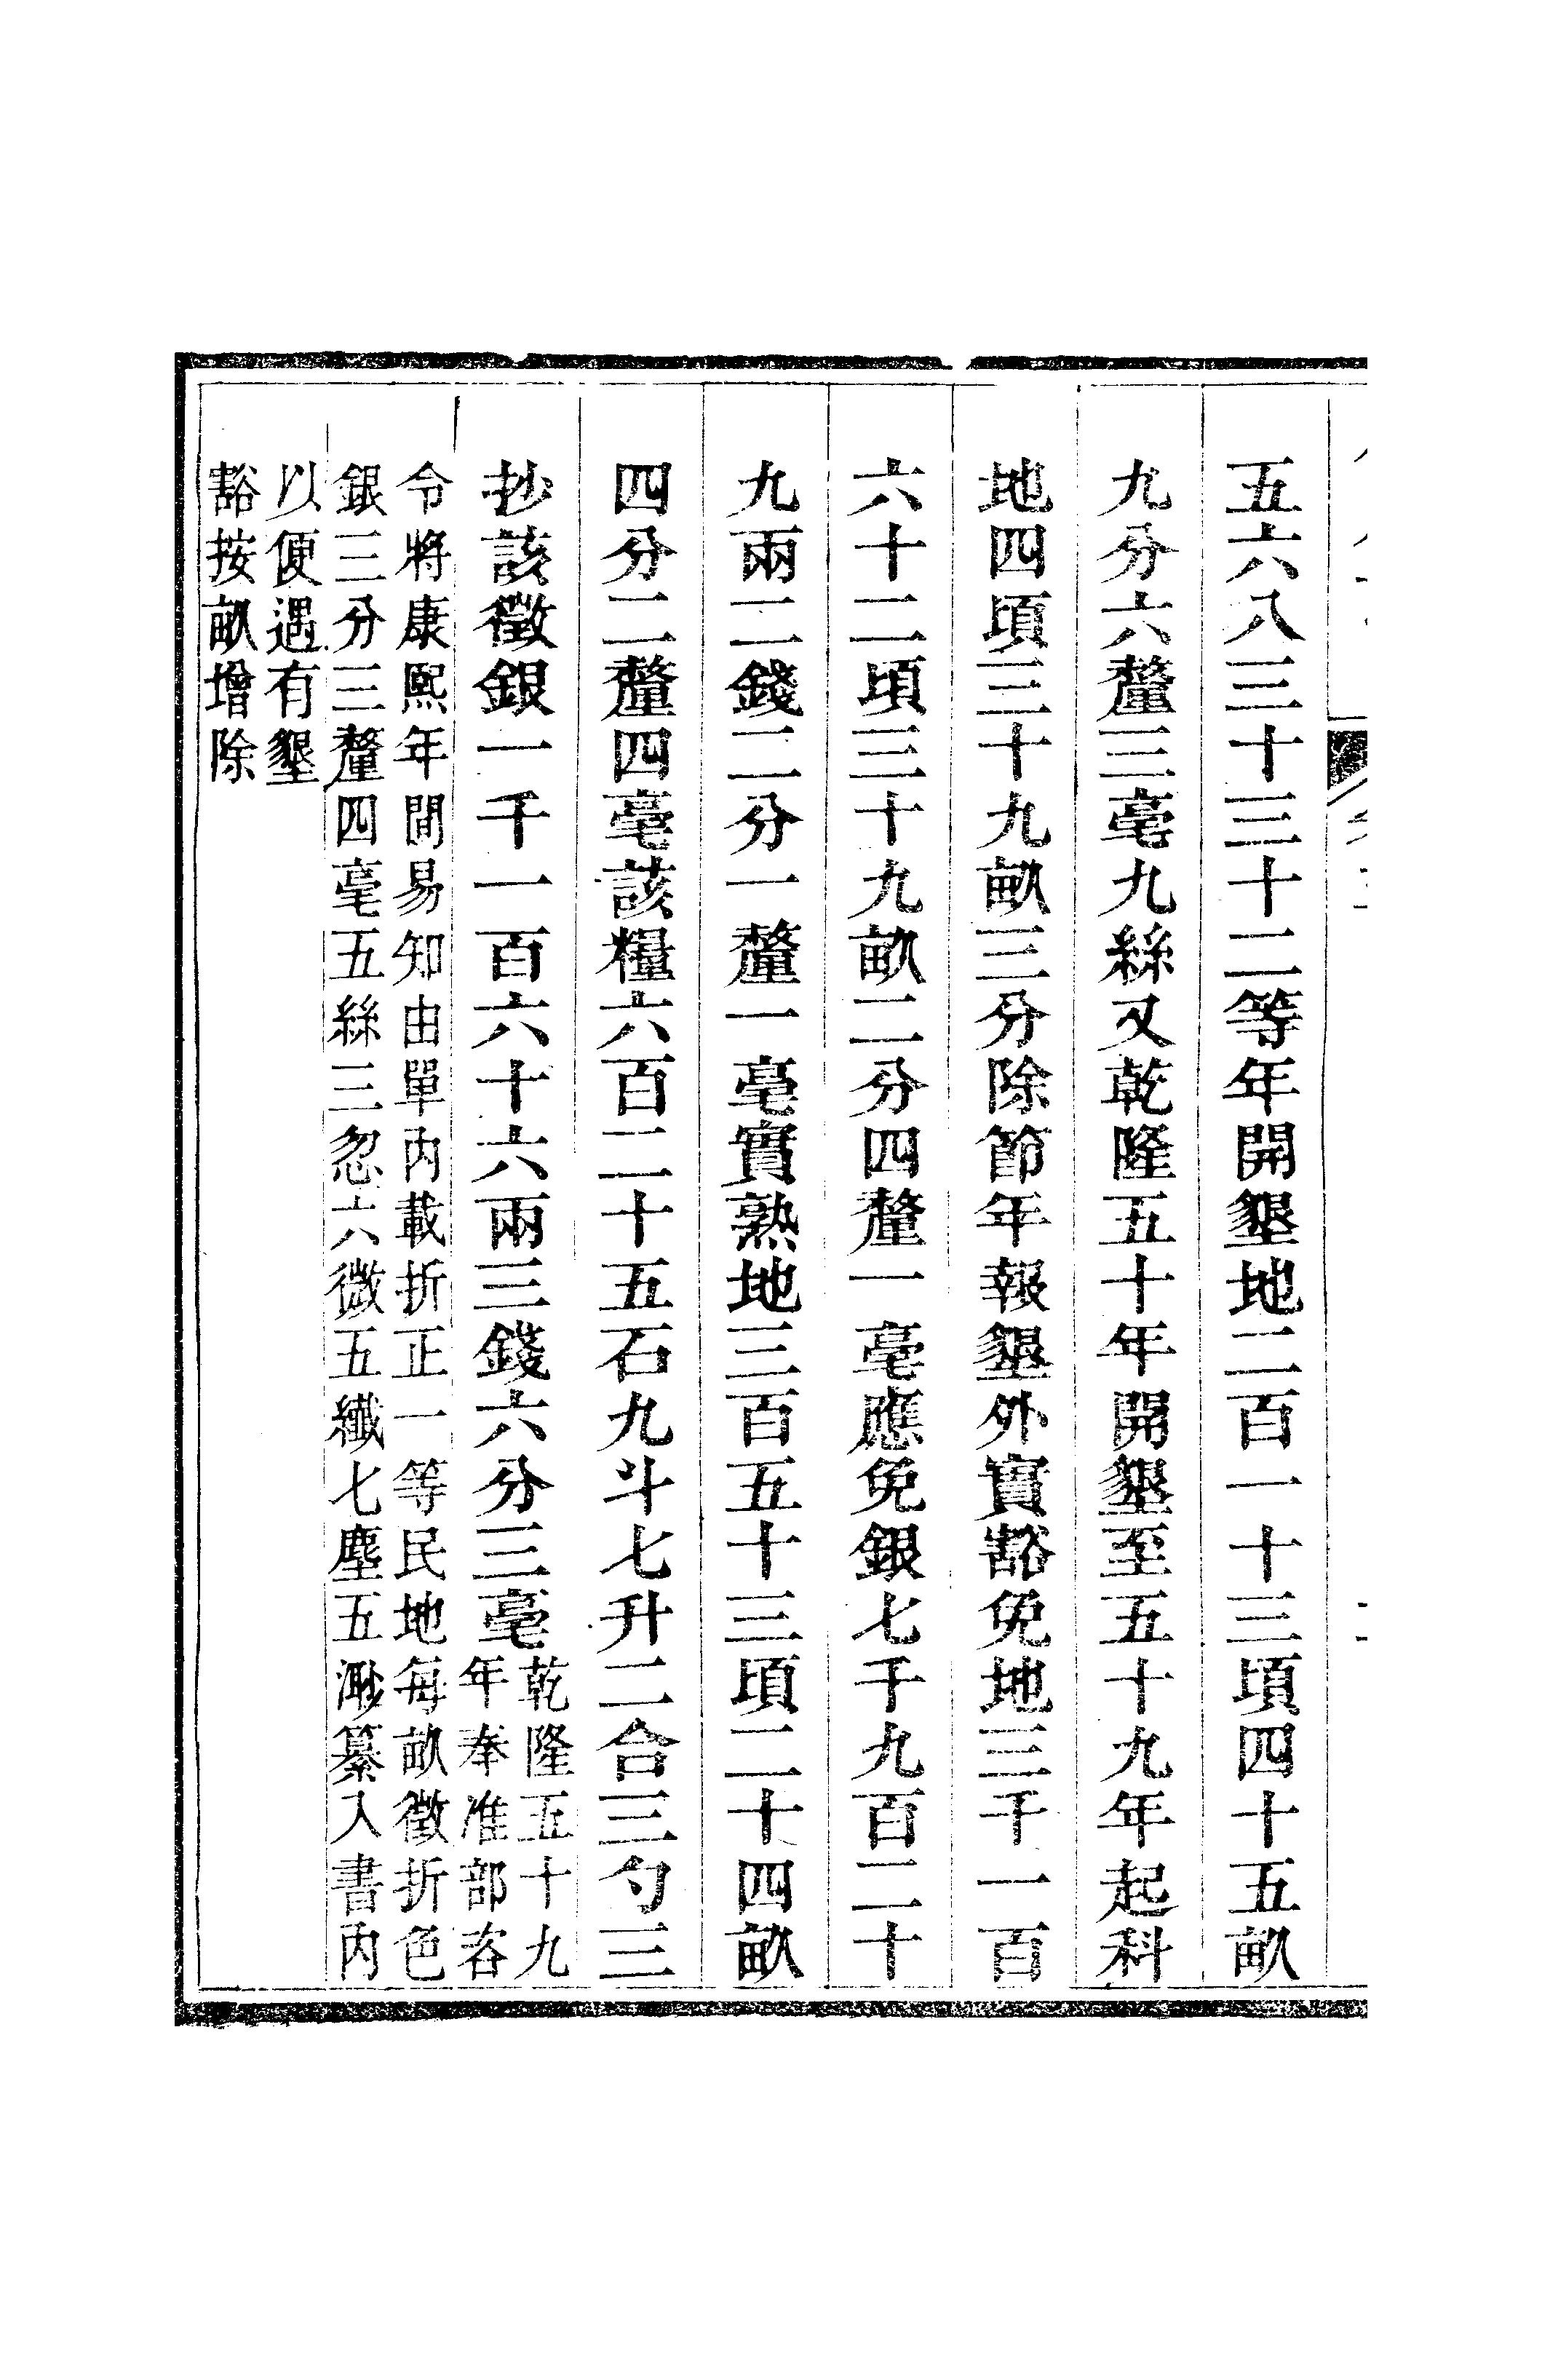 五六八三十三十二等年開墾地二百一十三頃四十五畝
九分六釐三毫九絲又乾隆五十年開墾至五十九年起科
地四頃三十九畝三分除節年報墾外實豁免地三千一百
六十二頃三十九畝二分四釐一毫應免銀七千九百二十
九兩二錢二分一釐一毫實熟地三百五十三頃二十四畝
四分二釐四毫該糧六百二十五石九斗七升二合三勺三
抄該徵銀一千一百六十六兩三錢六分三毫
乾隆五十九
年奉准部咨
令將康熙年間易知由單內載折正一等民地每畝徵折色
銀三分三釐四毫五絲三忽六微五纖七塵五渺纂入書內
以便遇有墾
豁按畝增除